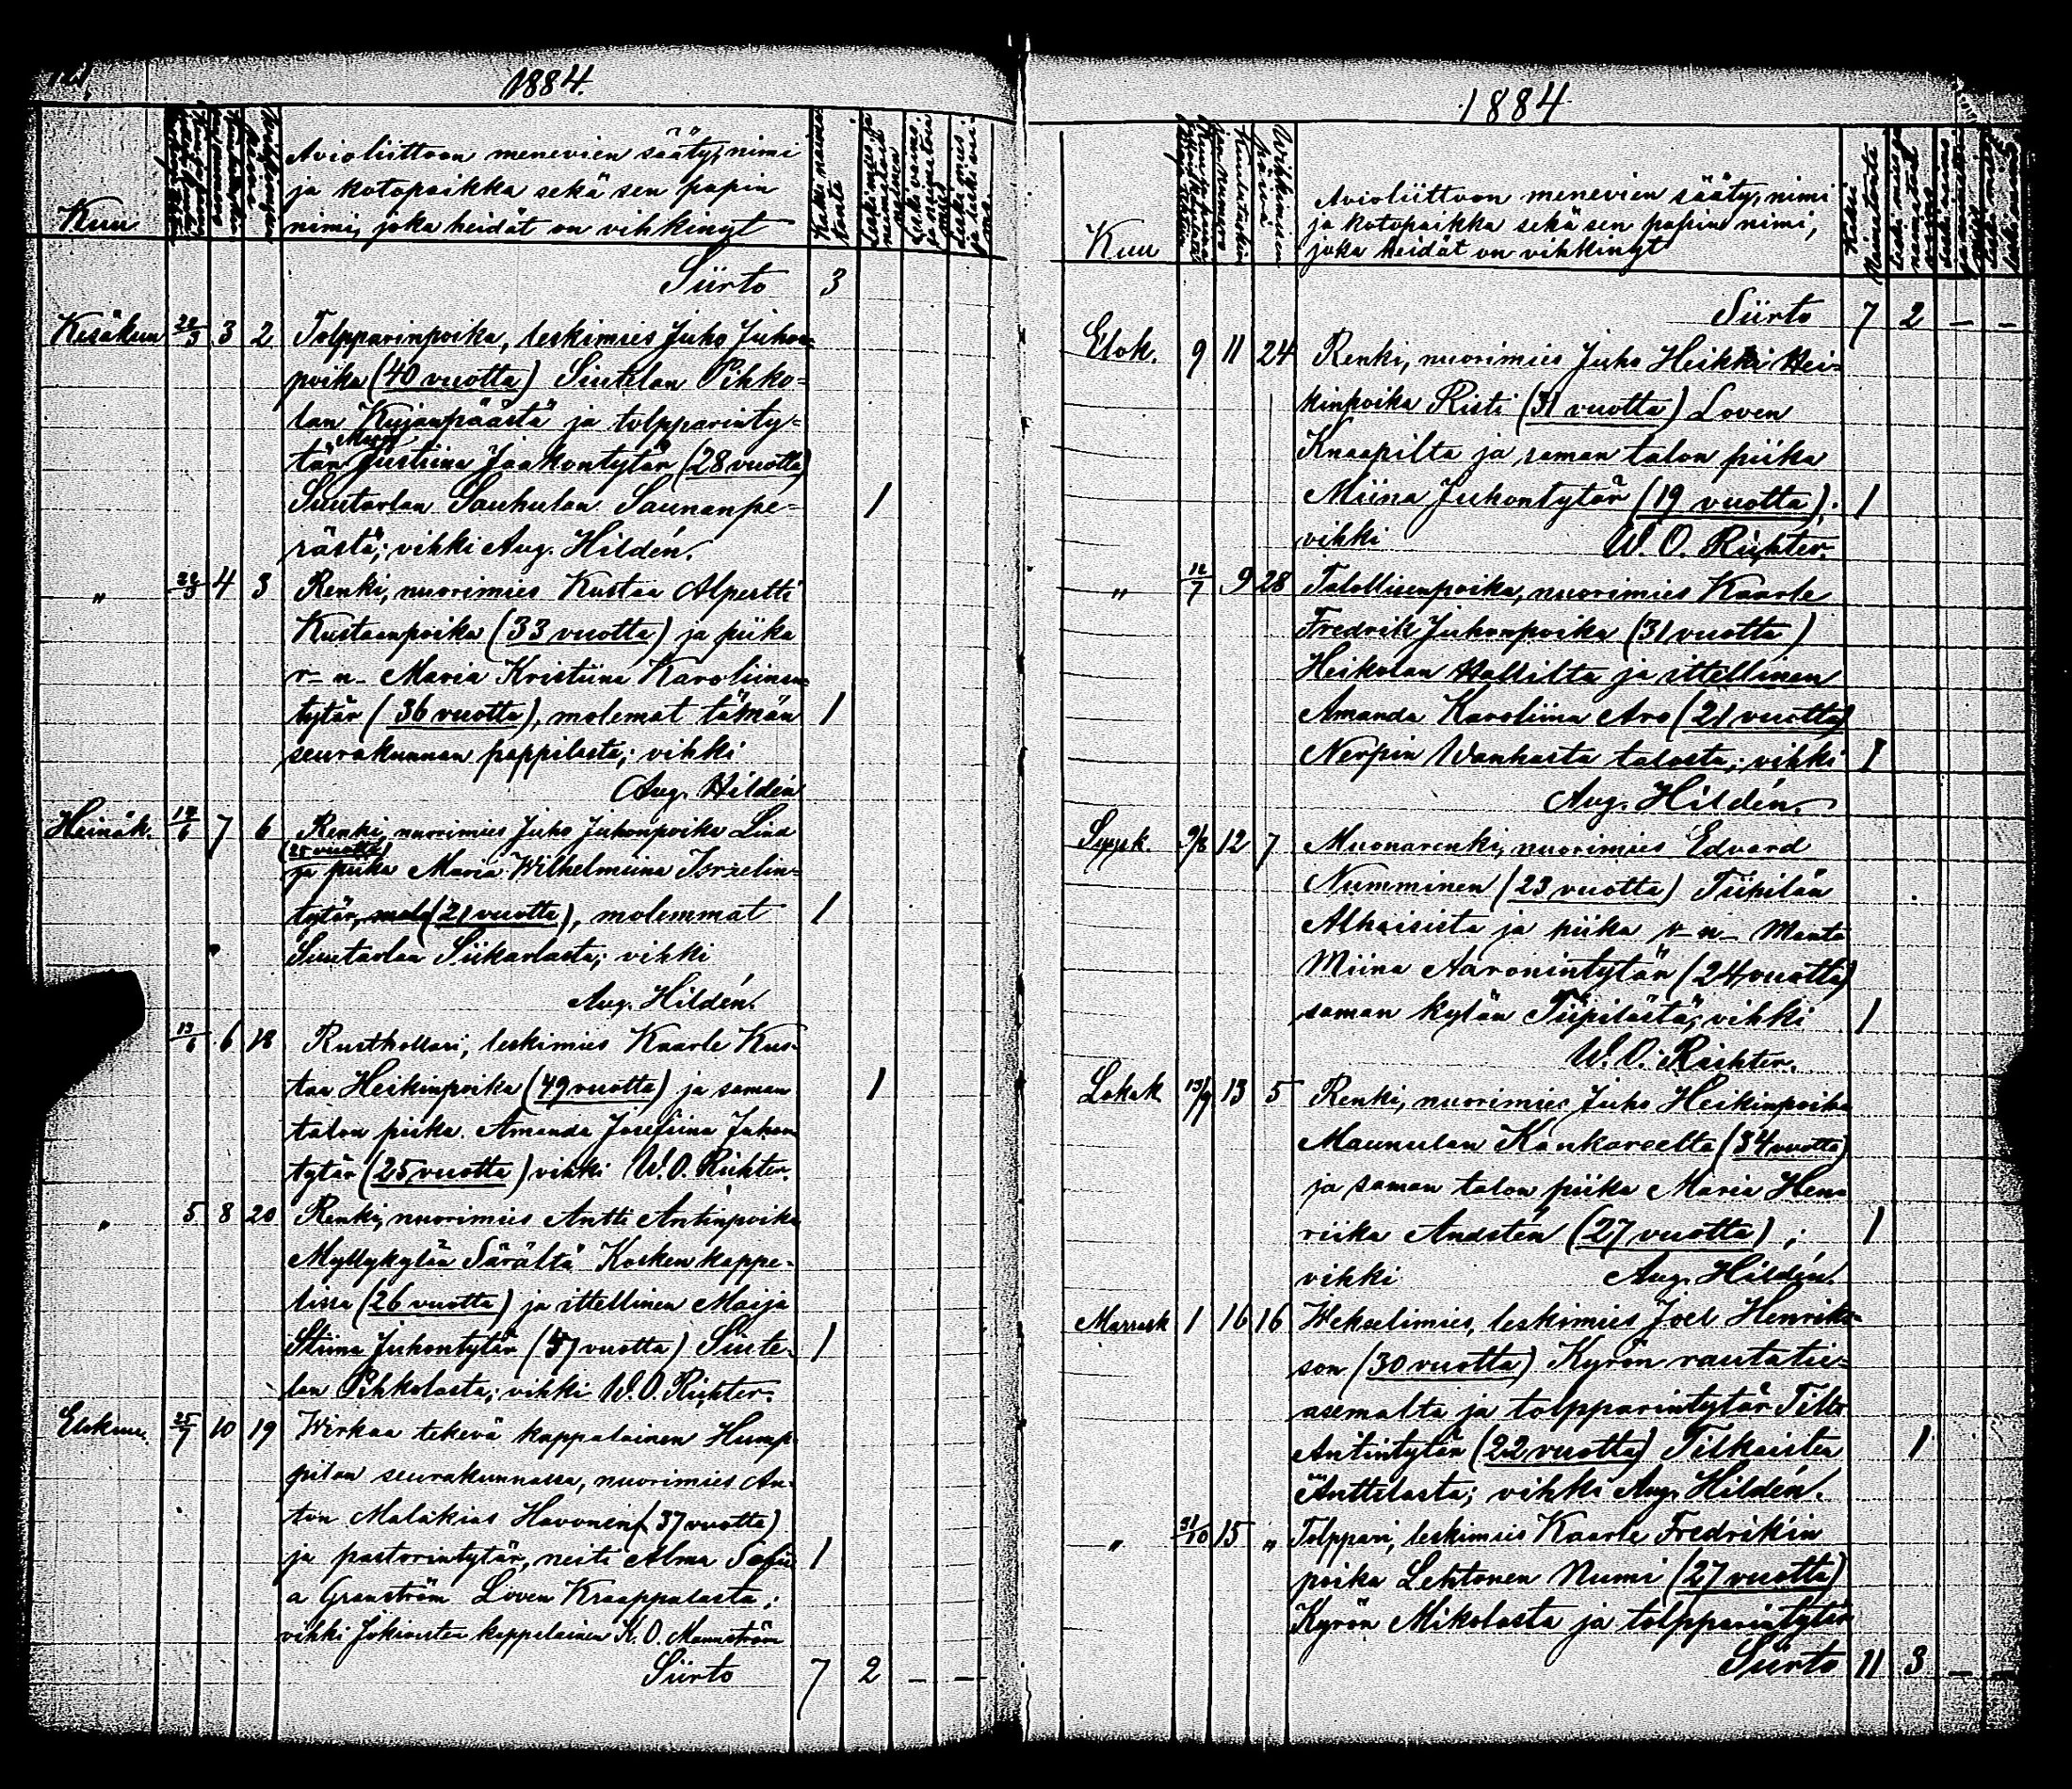 1884.
Kuu
Avioliittoon menevien sääty, nimi
ja kotopaikka sekä sen papin
nimi, joka heidät on vihkinyt
Siirto 3
Kesäkuu 3 2 Tolpparinpoika, leskimies Juho Juhon=
poika (40 vuotta) Siutelan Pihko=
lan Kujanpäästä ja tolpparinty=
tär Justiina Jaakontytär (28 vuotta)
Suutarlan Sauhulan Saunanpe- 1
rästä; vihki Aug. Hildén.
" 4 3 Renki, nuorimies Kustaa Alpertti
Kustaanpoika (33 vuotta) ja piika
r- n- Maria Kristiina Karoliinan=
tytär (36 vuotta), molemat tämän 1
seurakunnan pappilasta; vihki
Aug. Hildén
Heinäk. 7 6 Renki, nuorimies Juho Juhonpoika Lind
(25 vuotta)
ja piika Maria Wilhelmiina Israelin=
tytär, (21 vuotta), molemmat 1
Suutarlan Siikarlasta; vihki
Aug. Hildén.
13/6 6 18 Rusthollari, leskimies Kaarle Kus-
taa Heikinpoika (49 vuotta) ja saman 1
talon piika Amanda Josefiina Juhon
tytär (25 vuotta) vihki W. O. Richter.
" 5 8 20 Renki, nuorimies Antti Antinpoika
Myllykylän Särältä Kosken kappe-
lissa (26 vuotta) ja ittellinen Maija
Stiina Juhontytär ( vuotta) Siute- 1
lan Pihkolasta; vihki W. O. Richter.
Elokuu. 25/7 10 19 Wirkaa tekevä kappalainen Hump-
pilan seurakunnassa, nuorimies An-
ton Malakias Havonen (37 vuotta)
ja pastorintytär, neiti Alma Sofi- 1
a Granström Loven Knaappalasta;
vihki Jokioisten kappalainen K. O. Mannström
Siirto 7 2 - -
1884
Kuu
Avioliittoon menevien sääty, nimi
ja kotopaikka sekä sen papin nimi,
joka heidät on vihkinyt
Siirto 7 2 - -
Elok. 9 11 24 Renki, nuorimies Juho Heikki Hei-
kinpoika Risti (31 vuotta) Loven
Knaapilta ja saman talon piika
Miina Juhontytär (19 vuotta); 1
vihki W. O. Richter.
" 12/7 9 28 Talollisenpoika, nuorimies Kaarle
Fredrik Juhonpoika (31 vuotta)
Heikolan Hallilta ja ittellinen
Amanda Karoliina Aro (21 vuotta)
Nerpin Wanhasta talosta; vihki 1
Aug. Hildén.
Syysk. 9/8 12 7 Muonarenki, nuorimies Edvard
Numminen (23 vuotta) Tiipilän
Alhaisista ja piika r- n- Manta
Miina Aaronintytär (24 vuotta)
saman kylän Tiipilästä; vihki 1
W. O. Richter.
Lokak 13/9 13 5 Renki, nuorimies Juho Heikinpoika
Maunulan Kankareelta (34 vuotta)
ja saman talon piika Maria Hen-
riika Andstén (27 vuotta); 1
vihki Aug. Hildén.
Marrask 1 16 16 Wekselimies, leskimies Joel Henriks-
son (30 vuotta) Kyrön rautatie-
asemalta ja tolpparintytär Tilta
Antintytär (22 vuotta) Tilkaisten 1
Änttilästa; vihki Aug. Hildén.
" 31/10 15 " Tolppari, leskimies Kaarle Fredrikin
poika Lehtonen Numi (27 vuotta)
Kyrön Mikolasta ja tolpparintytär
Siirto 11 3 - -